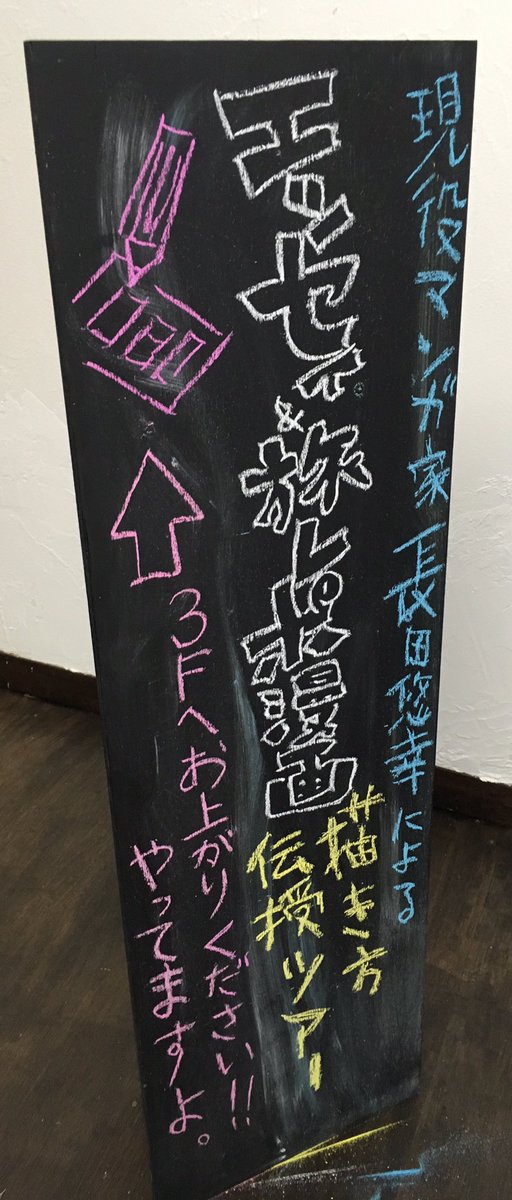 現役マンガ家 長田悠幸による
エッセイ&旅レポ漫画
描き方
伝授ツアー
3Fへお上がりください!!
やってますよ。